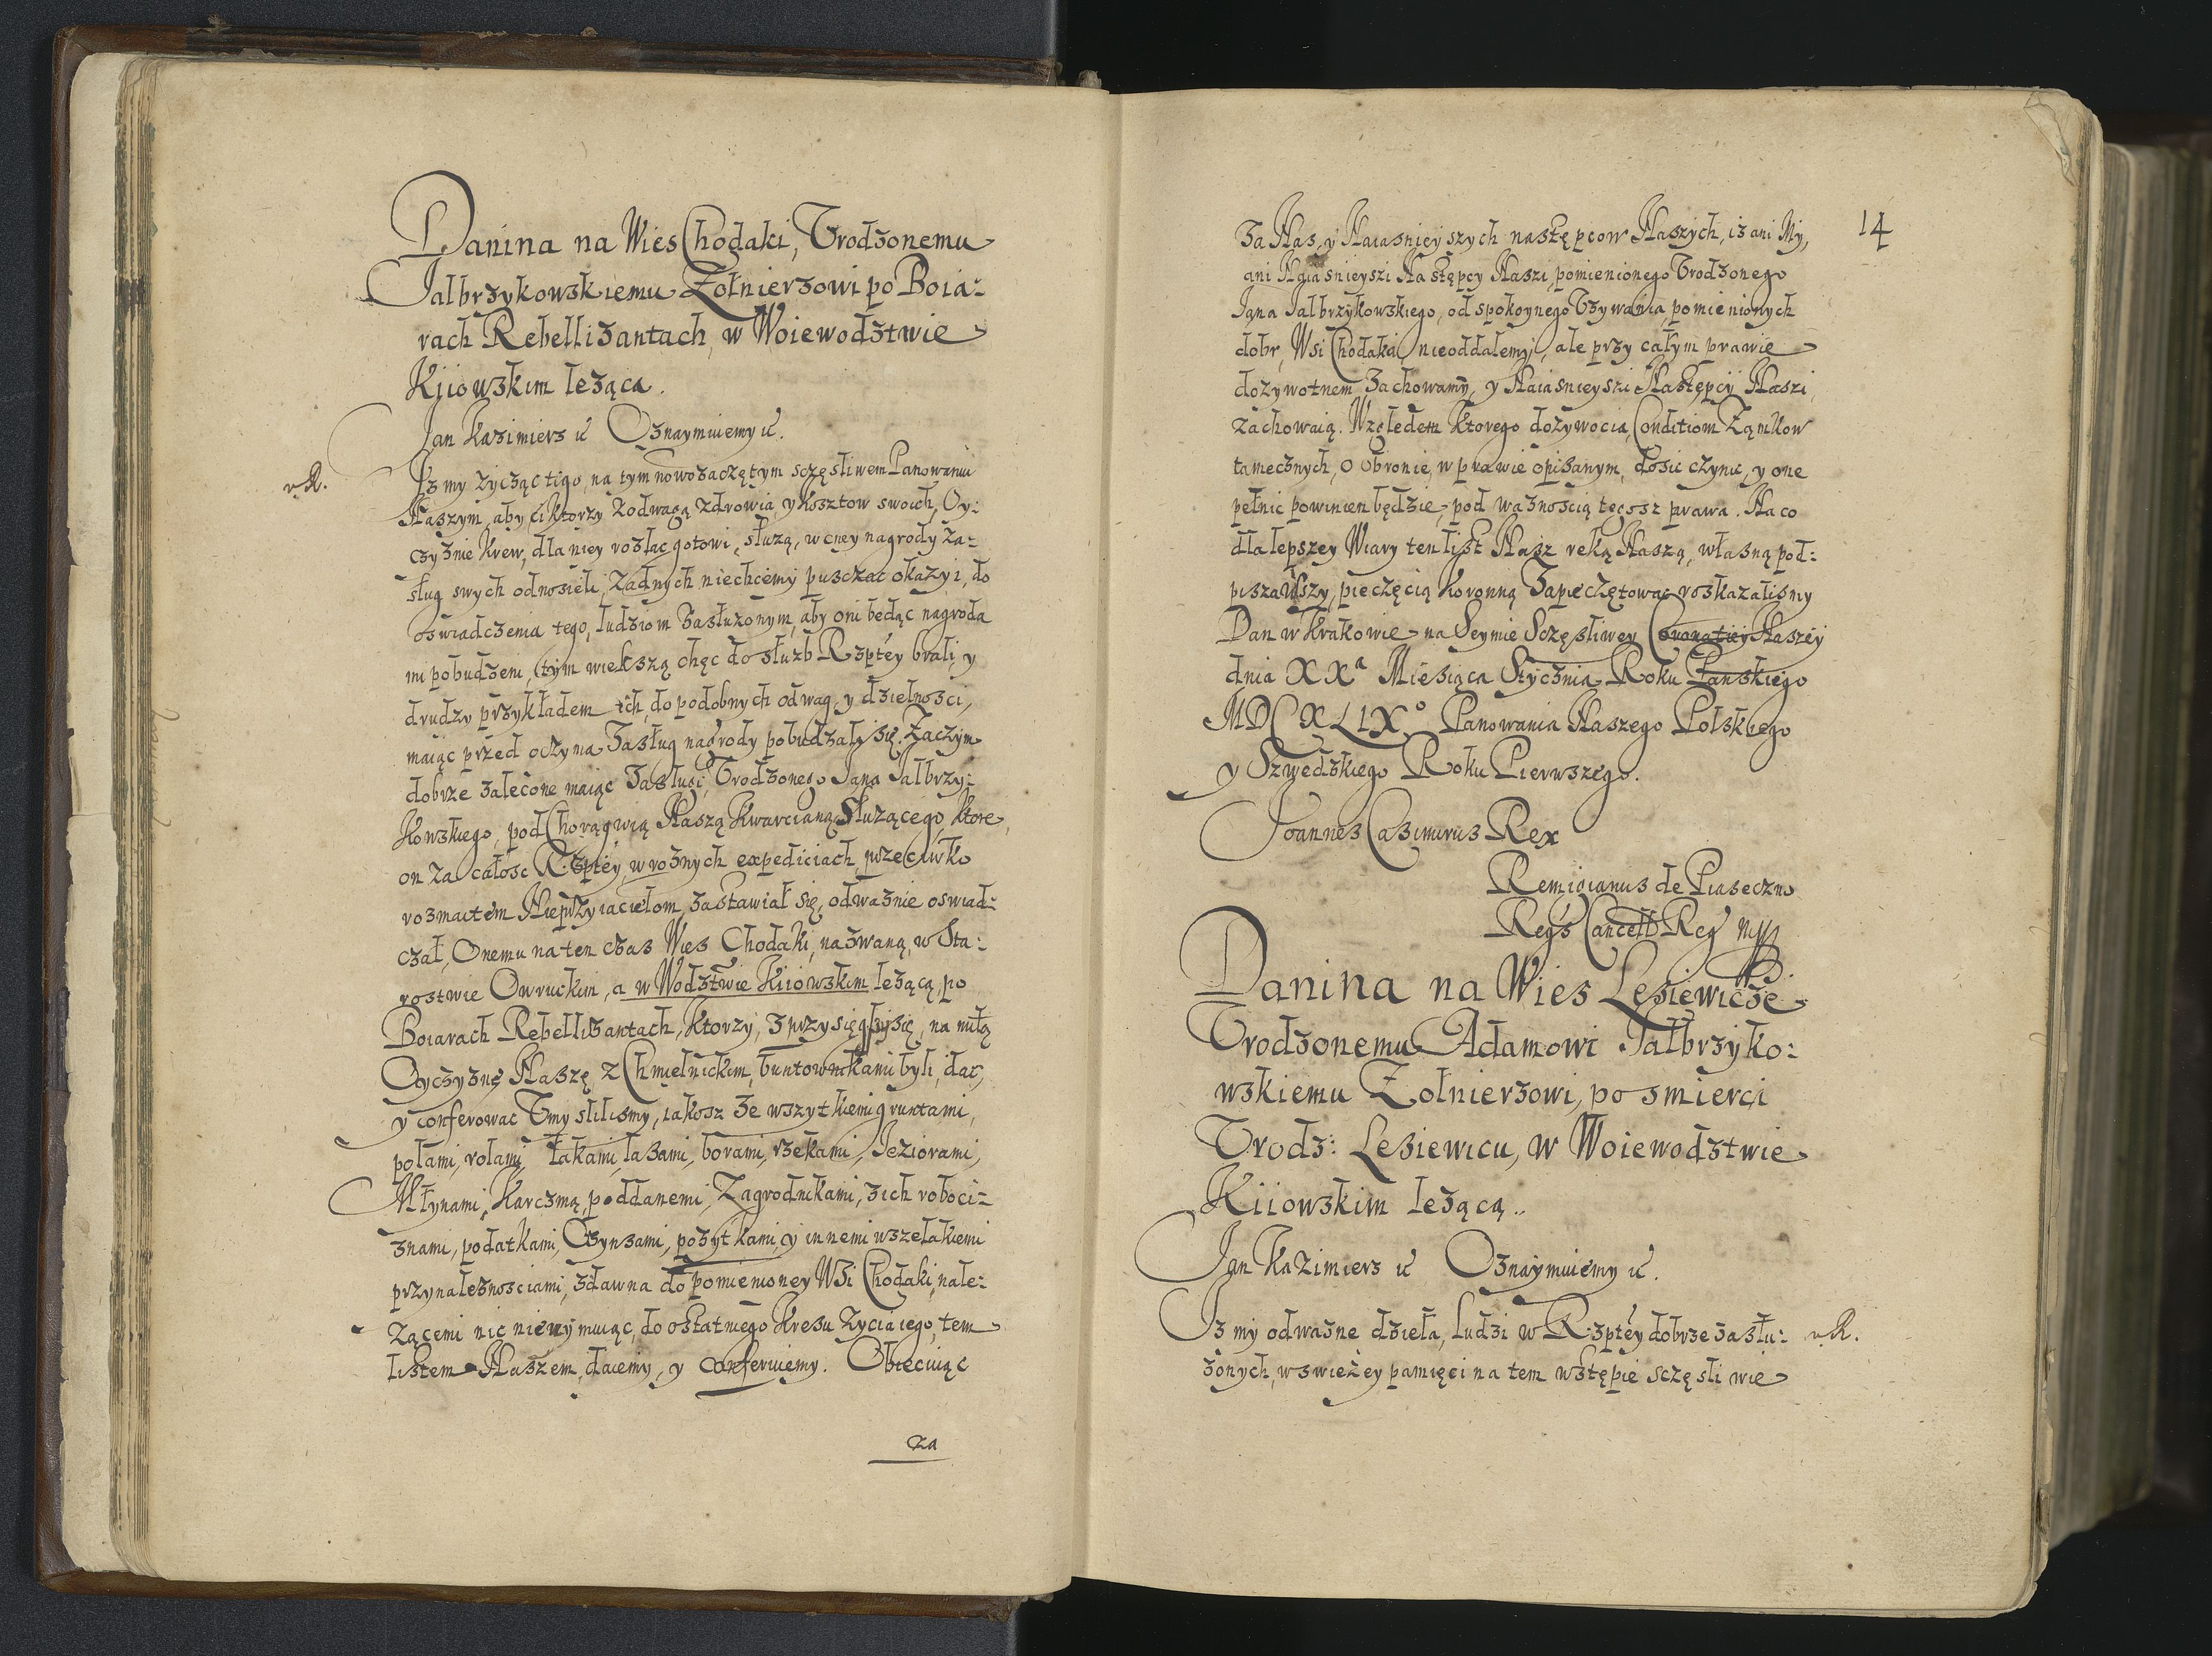 Danina na Wies Chodaki, Urodzonemu
Jalbrzykowskiemu Zołnierzowi po Boia:
rach Rebellizantach, w Woiewodztwie
Kiiowskim leząca.
Jan Kazimierz &c Oznaymuiemy &c.
v.R. Iz my zycząc tego, na tym nowozaczętym sczęsliwem Panowaniu
Naszym, aby ci ktorzy z odwagą zdrowia, y kosztow swoich, Oy:
czyznie krew, dla niey rozlac gotowi, służą, wcney nagrody za:
sług swych odnosieli, zadnych niechcemy pusczac okazyi, do
oswiadczenia tego, ludziom zasłużonym, aby oni będąc nagroda
mi pobudzeni, tym wiekszą chęc do służb Rzptey brali, y
drudzy przykładem ich, do podobnych odwag, y dzielnosci,
maiąc przed oczyma zasług nagrody pobudzali się. Zaczym
dobrze zalecone maiąc zasługi, Urodzonego Jana Jalbrzy:
kowskiego, pod Chorągwią Naszą Kwarcianą Służącego, ktore
on za całosc R.zptey, w roznych expediciach, przeciwko
rozmaitem Nieprzyiacielom, zastawiał się, odwaznie oswiad:
czał, Onemu na ten czas Wies Chodaki, nazwaną, w Sta:
rostwie Owruckim, a w Wodztwie Kiiowskim lezącą, po
Boiarach Rebellizantach, ktorzy, zprzysięgłszy się, na miłą
Oyczyznę Naszę, z Chmielnickim, buntownikami byli, dac,
y conferowac Umyslilismy, iakosz ze wszytkiemi gruntami,
polami, rolami, łąkami, lasami, borami, rzekami, Jeziorami,
Młynami, Karczmą, poddanemi, Zagrodnikami, zich roboci:
znami, podatkami, Czynszami, pozytkami, y innemi wszelakiemi
przynaleznosciami, zdawna do pomienioney Wsi Chodaki, nale:
zącemi nic nie wymuiąc, do ostatniego kresu zycia iego, tem
listem Naszem, daiemy, y conferuiemy. Obiecuiąc
za
14
za Nas, y Naiasnieyszych następcow Naszych, iz ani My,
ani Naiasnieyszi Następcy Naszi, pomienionego Urodzonego
Jana Jalbrzykowskiego, od spokoynego Uzywania, pomienionych
dobr, Wsi Chodaki, nieoddalemy, ale przy całym prawie
dozywotnem, zachowamy, y Naiasnieyszi Następcy Naszi,
zachowaią. Względem ktorego dozywocia, Conditiom Zamkow
tamecznych, o obronie, w prawie opisanym, dosic czynic, y one
pełnic powinien będzie, pod waznoscią tegosz prawa. Na co
dla lepszey Wiary ten list Nasz ręką Naszą, własną pod:
pisawszy, pieczęcią Koronną Zapieczętowac roskazalismy
Dan w Krakowie na Seymie Sczęsliwey Coronatiey Naszey
dnia XXa Miesiąca Stycznia Roku Panskiego
MDCXLIXo. Panowania Naszego Polskiego
y Szwedzkiego Roku Pierwszego.
Joannes Casimirus Rex
Remigianus de Piaseczno
Danina na Wies Lesiewicze
Urodzonemu Adamowi Jałbrzyko:
wskiemu Zolnierzowi, po smierci
Urodz: Lesiewicu, w Woiewodztwie
Kiiowskim lezącą..
Jan Kazimierz &c Oznaymuiemy &c.
Iz my odwazne dzieła, ludzi w R.zptey dobrze zasłu: v.R.
zonych, w swiezey pamięci na tem wstępie sczęsliwie